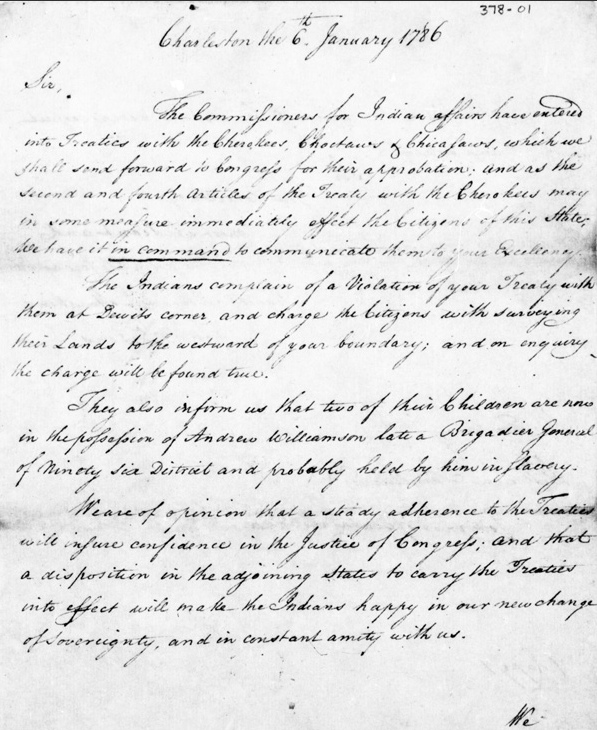 378-01
Charleston the 6th January 1786
Sir,
The Commissioners for Indian affairs have entered
into Treaties with the Cherokees, Choctaws & Chicasaws, which we
shall send forward to Congress for their approbation; and as the
second and fourth articles of the Treaty with the Cherokees may
in some measure immediately effect the Citizens of this State,
We have it in command to communicate them to your Excellency.
The Indians complain of a Violation of your Treaty with
them at Dewits corner, and charge the Citizens with surveying
their Lands to the westward of your boundary; and on enquiry
the charge will be found true.
They also inform us that two of their Children are now
in the possession of Andrew Williamson late a Brigadier General
of Ninety six District and probably held by him in Slavery.
We are of opinion that a steady adherence to the Treaties
will insure confidence in the Justice of Congress; and that
a disposition in the adjoining States to carry the Treaties
into effect will make the Indians happy in our new change
of Sovereignty, and in constant amity with us.
We